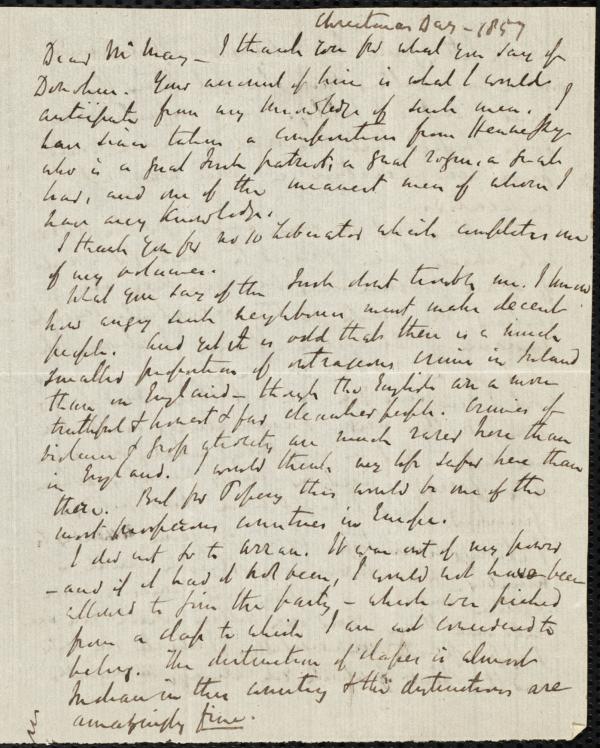 Christmas Day – 1857
Dear Mr May – I thank you for what you say of
Donohue. Your account of him is what I would
anticipate from my knowledge of such men. I
have since taken a from Hennessy
who is a great Irish patriot, a great rogue, a great
liar, and one of the meanest men of whom I
have any knowledge.
I thank you for no 10 Liberator which completes one
of my volumes.
What you say of the Irish dont trouble me. I know
how angry such neighbours must make decent
people. And yet it is odd that there is a much
smaller proportion of outrageous crime in Ireland
than in England – though the English are a more
truthful & honest & far cleanlier people. Crimes of
violence & gross atrocity are much rarer here than
in England. I would think my life safer here than
there. But for Popery this would be one of the
most prosperous countries in Europe.
I did not go to Arran. It was out of my power
– and if it had not been, I would not have been
allowed to join the party – which was picked
from a class to which I am not considered to
belong. The distinction of classes is almost
Indian in this country & the distinctions are
amazingly fine.